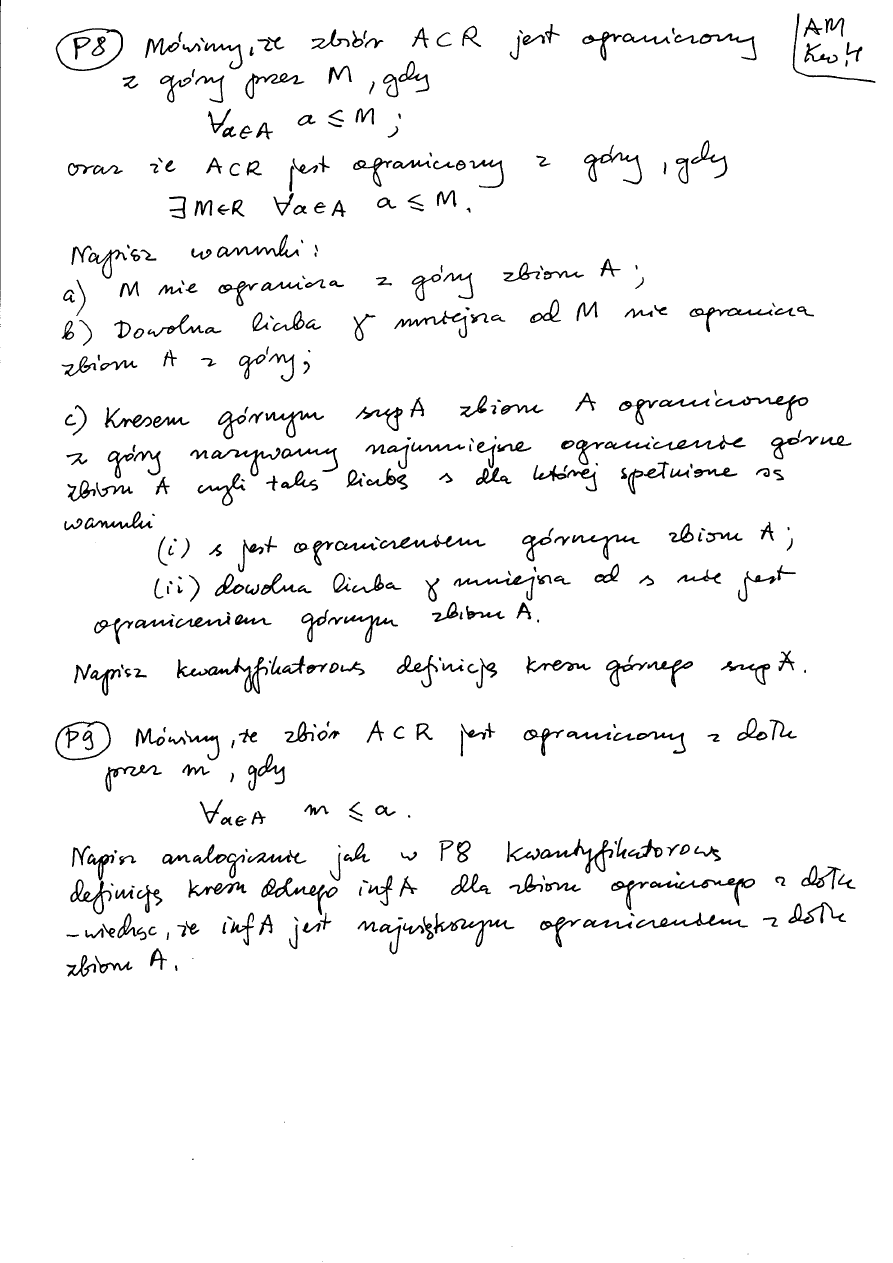 P8 Mówimy, że zbiór A⊂R jest ograniczony
AM
Kw, 4
z góry przez M, gdy
∀a∈A a ≤ M ;
oraz że A⊂R jest ograniczony z góry, gdy
∃M∈R ∀a∈A a ≤ M.
Napisz warunki:
a) M nie ogranicza z góry zbioru A ;
b) Dowolna liczba γ mniejsza od M nie ogranicza
zbioru A z góry;
c) Kresem górnym sup A zbioru A ograniczonego
z góry nazywamy najmniejsze ograniczenie górne
zbioru A czyli taką liczbę s dla której spełnione są
warunki
(i) s jest ograniczeniem górnym zbioru A ;
(ii) dowolna liczba γ mniejsza od s nie jest
ograniczeniem górnym zbioru A.
Napisz kwantyfikatorową definicję kresu górnego sup A.
P9 Mówimy, że zbiór A⊂R jest ograniczony z dołu
przez m, gdy
∀a∈A m ≤ a.
Napisz analogicznie jak w P8 kwantyfikatorową
definicję kresu dolnego inf A dla zbioru ograniczonego z dołu
– wiedząc, że inf A jest największym ograniczeniem z dołu
zbioru A.